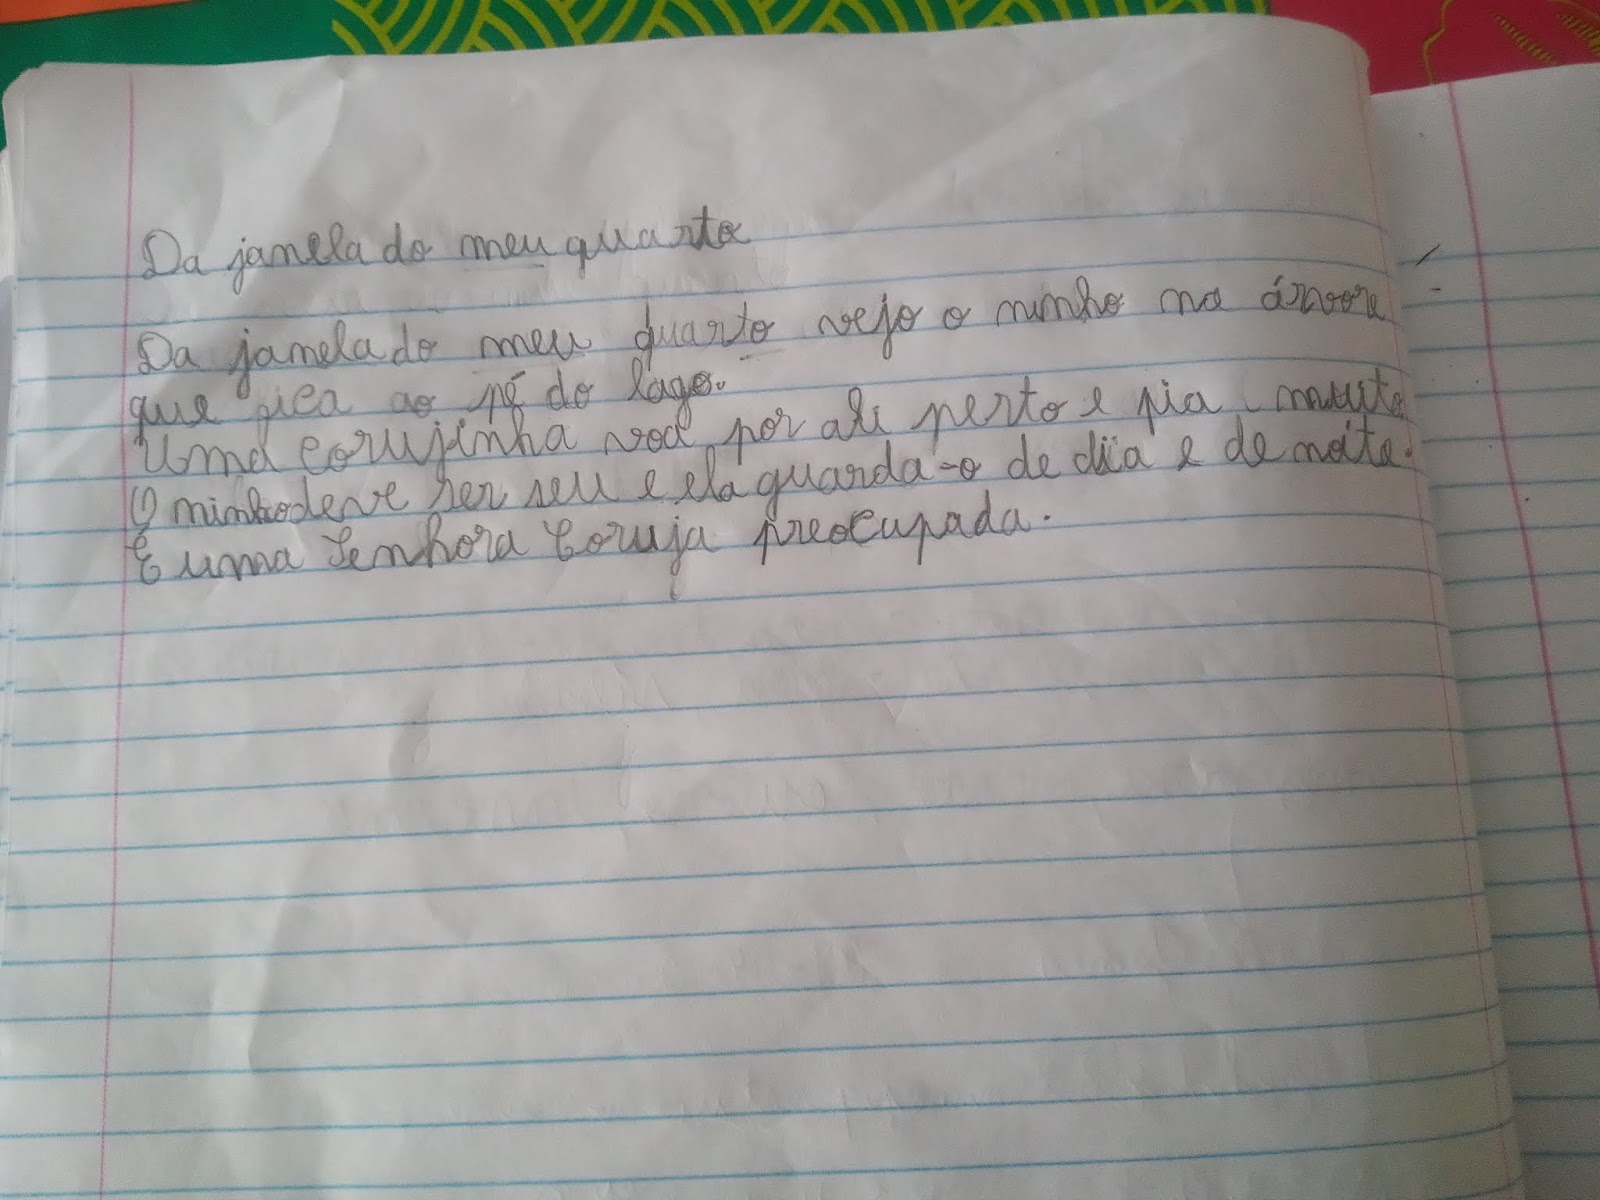 Da janela do meu quarto
Da janela do meu quarto vejo o ninho na árvore
que fica ao pé do lago.
Uma corujinha voa por ali perto e pia muito.
O ninho deve ser seu e ela guarda-o de dia e de noite.
É uma Senhora Coruja preocupada.